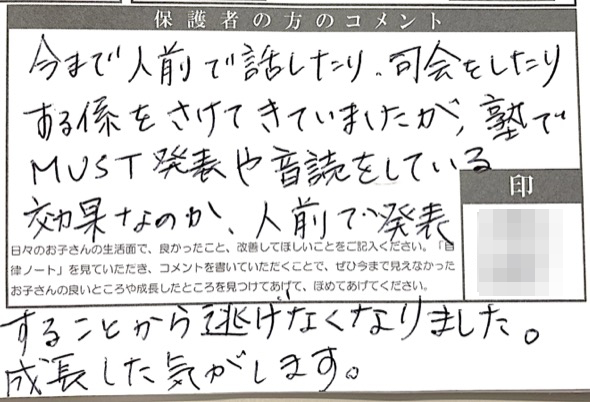 保護者の方のコメント
今まで人前で話したり、司会をしたり
する係をさけてきていましたが、塾で
MUST発表や音読をしている
印
効果なのか、人前で発表
日々のお子さんの生活面で、良かったこと、改善してほしいことをご記入ください。「自
律ノート」を見ていただき、コメントを書いていただくことで、ぜひ今まで見えなかった
お子さんの良いところや成長したところを見つけてあげて、ほめてあげてください。
することから逃げなくなりました。
成長した気がします。